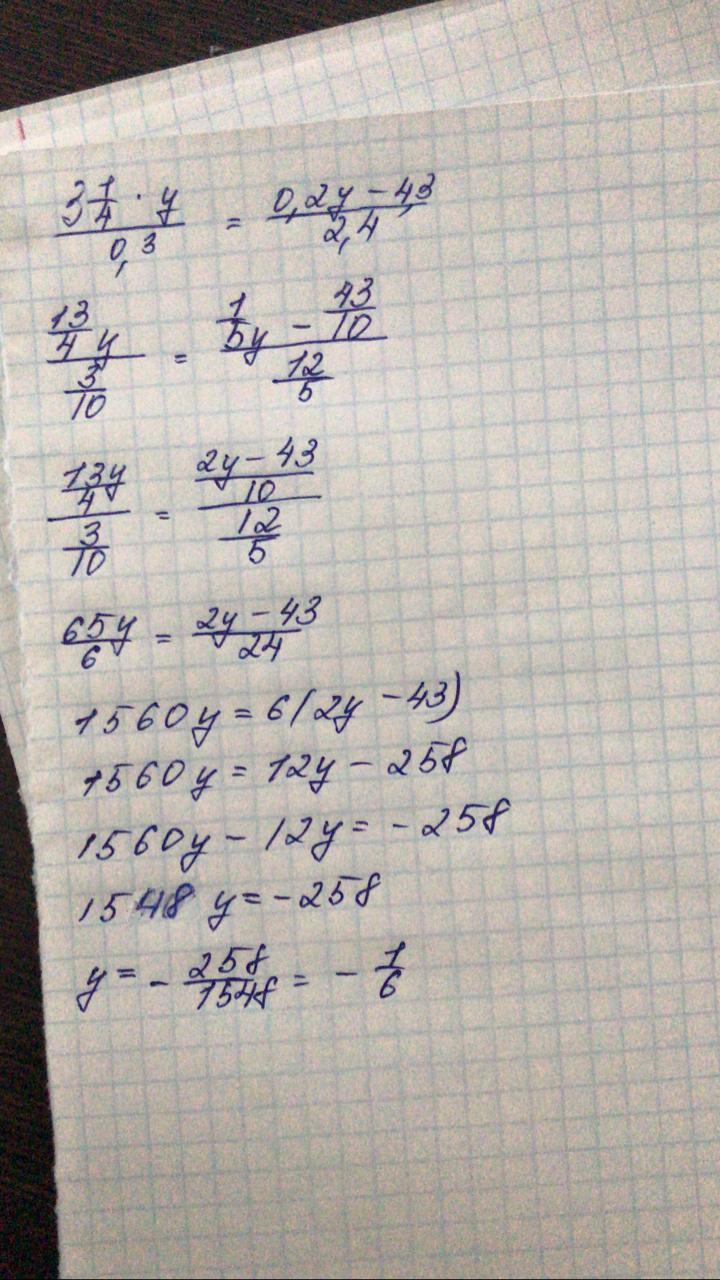 3 1/4 · y / 0,3 = 0,2y - 4,3 / 2,4
13/4 y / 3/10 = 1/5y - 43/10 / 12/5
13y/4 / 3/10 = 2y - 43/10 / 12/5
65y/6 = 2y - 43/24
1560y = 6(2y - 43)
1560y = 12y - 258
1560y - 12y = - 258
1548 y = - 258
y = - 258/1548 = - 1/6